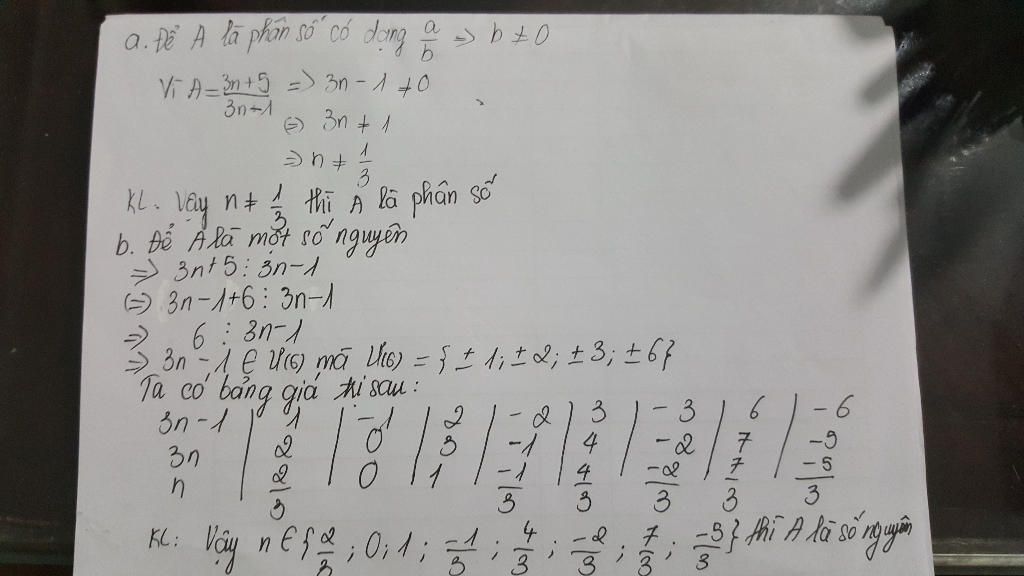 a. Để A là phân số có dạng a/b => b ≠ 0
Vì A = (3n+5)/(3n-1) => 3n - 1 ≠ 0
(=) 3n ≠ 1
=> n ≠ 1/3
KL: Vậy n ≠ 1/3 thì A là phân số
b. Để A là một số nguyên
=> 3n+5 ⋮ 3n-1
(=) 3n-1+6 ⋮ 3n-1
=> 6 ⋮ 3n-1
=> 3n-1 ∈ Ư(6) mà Ư(6) = {±1; ±2; ±3; ±6}
Ta có bảng giá trị sau:
3n-1 | 1 | -1 | 2 | -2 | 3 | -3 | 6 | -6
3n | 2 | 0 | 3 | -1 | 4 | -2 | 7 | -5
n | 2/3 | 0 | 1 | -1/3 | 4/3 | -2/3 | 7/3 | -5/3
KL: Vậy n ∈ {2/3; 0; 1; -1/3; 4/3; -2/3; 7/3; -5/3} thì A là số nguyên